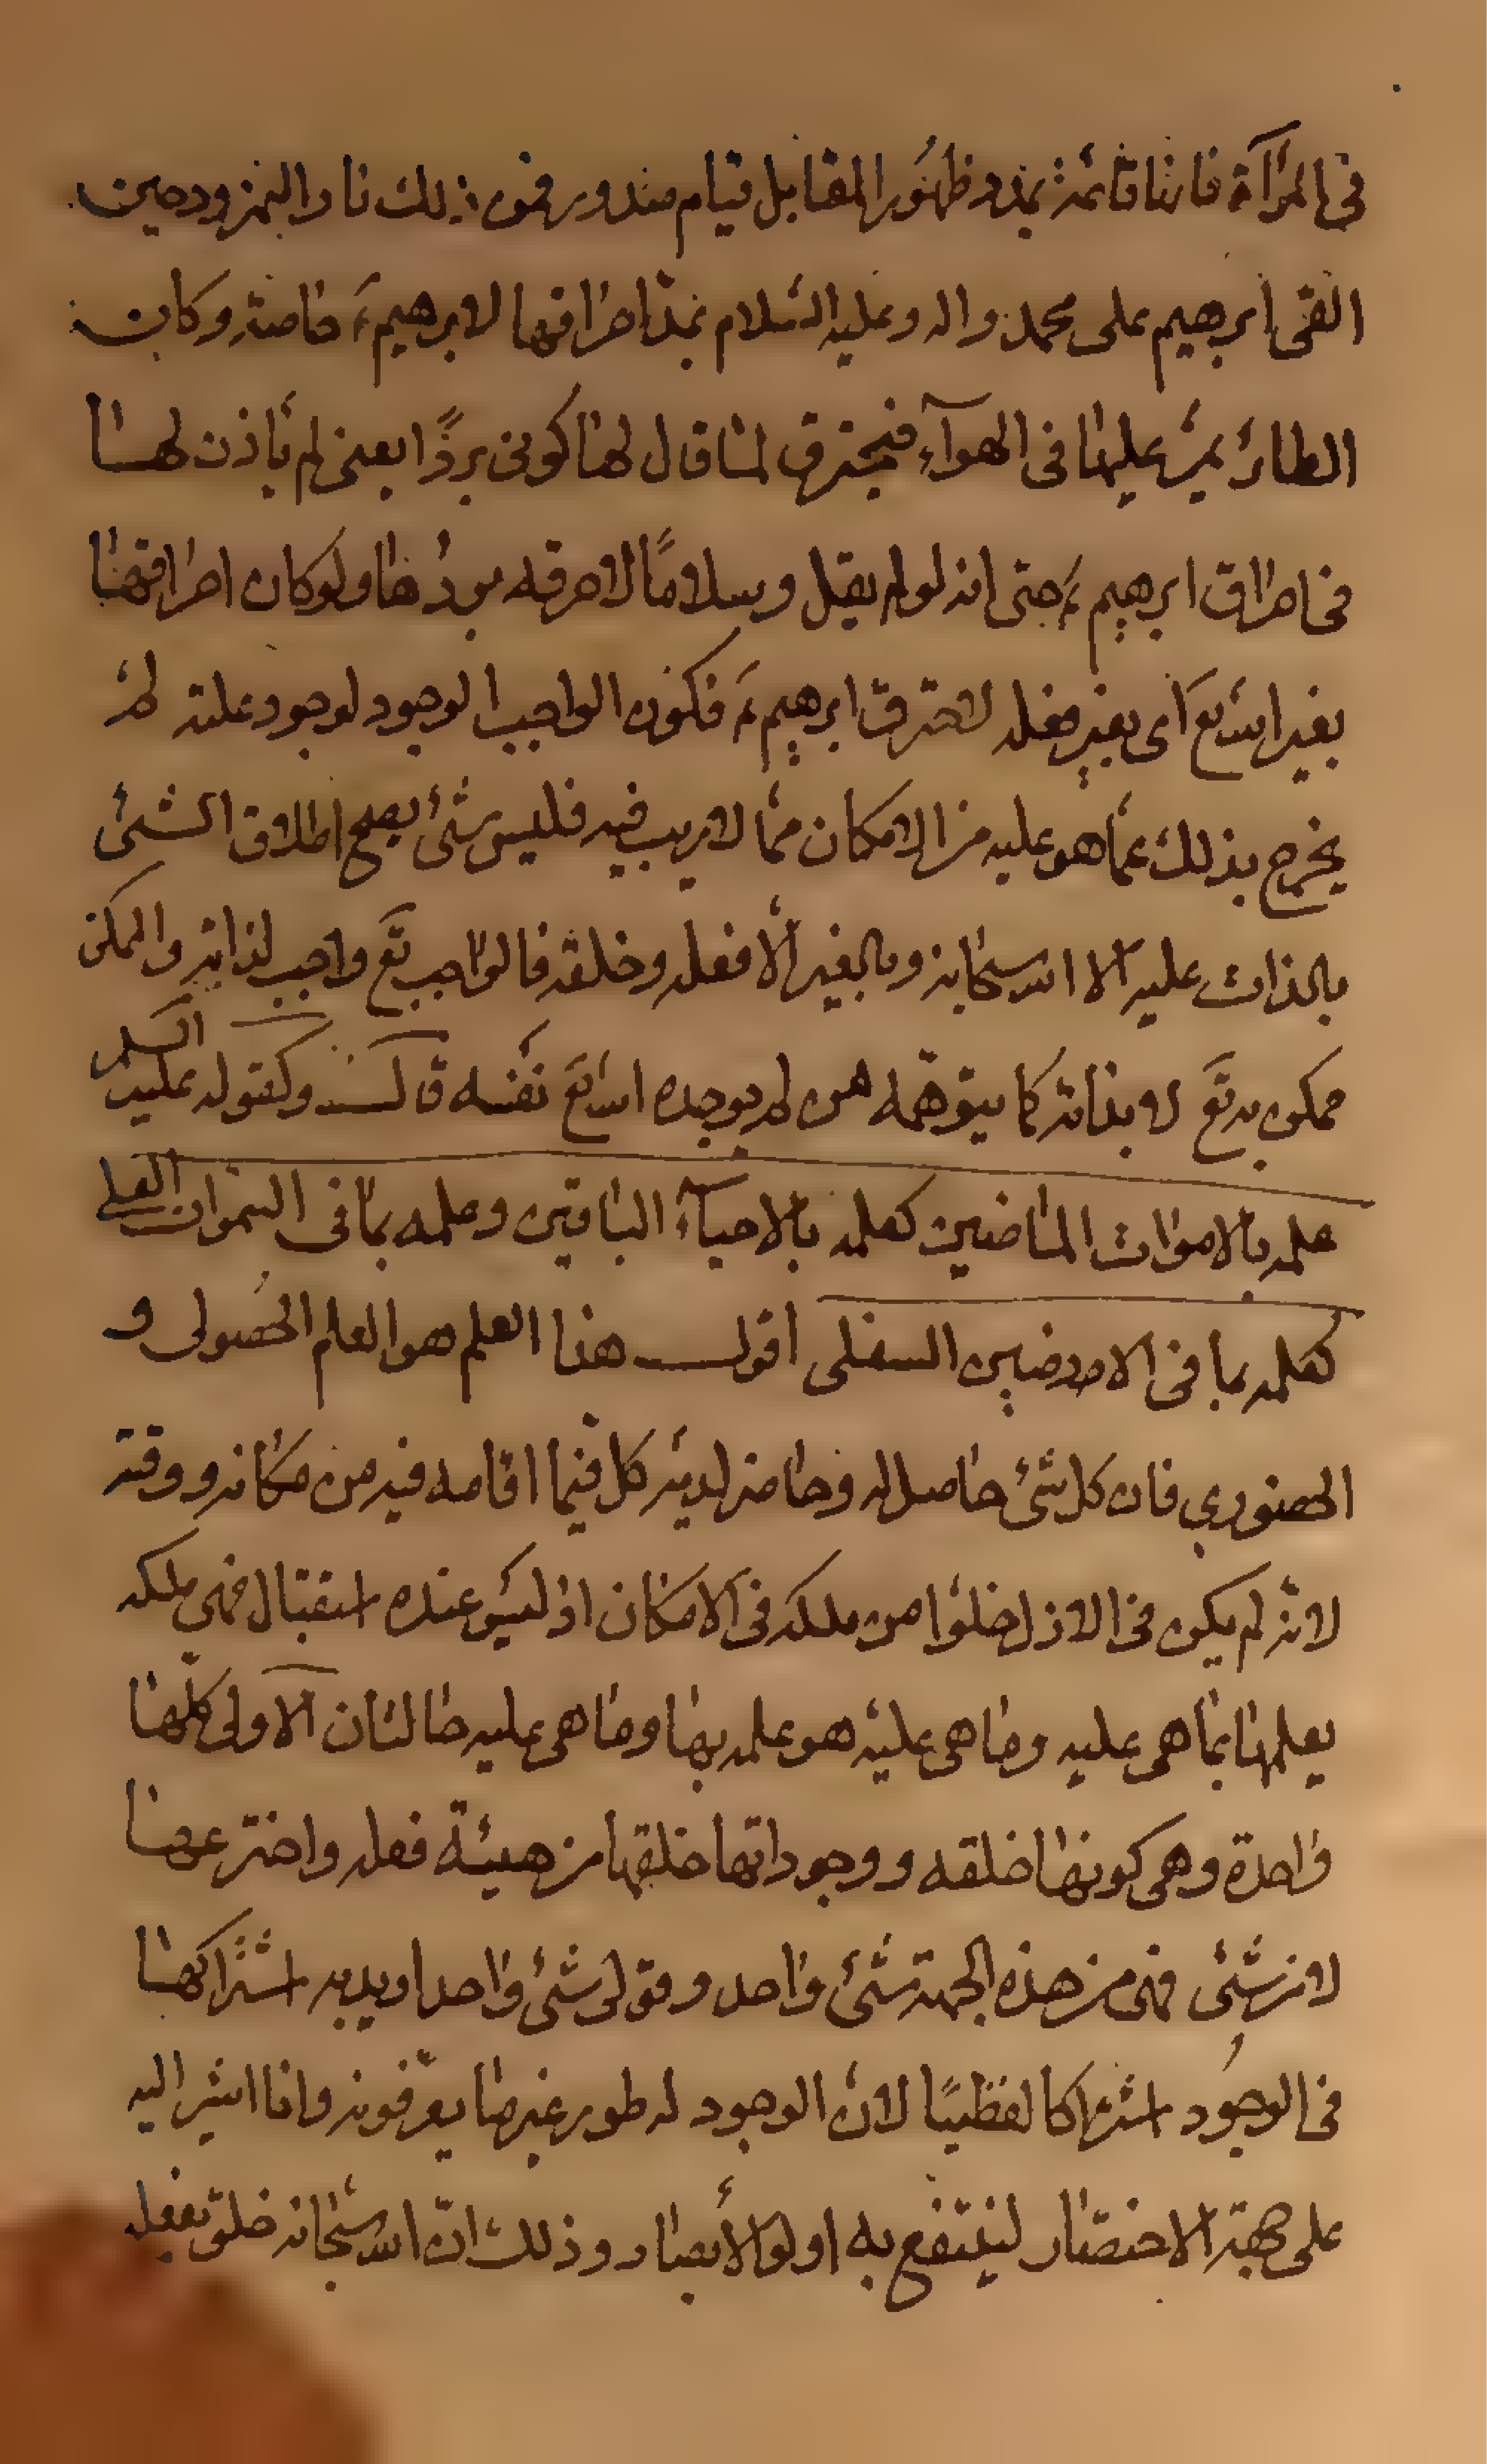 في المرآة فانها قائمة بمدد ظهور المقابل قيام صدور فمن ذلك نار النمرود حين
القى ابرهيم على محمد واله وعليه السلام بمدّ احراقها لابرهيم ع خاصة وكان
الطائر يمر عليها في الهوآء فيحترق لما قال لها كوني بردًا يعني لم يأذن لها
في احراق ابرهيم ع حتى انه لو لم يقل وسلامًا لاحرقه بردُها ولو كان احراقها
بغير الله تع اى بغير فعله لاحترق ابرهيم ع فكون الواجب الوجود لوجود علته لم
يخرج بذلك عما هو عليه من الامكان مما لا ريب فيه فليس شئ يصح اطلاق الشئ
بالذات عليه الا الله سبحانه وبالغير الا فعله وخلقه فالواجب تع واجب لذاته والممكن
ممكن به تع لا بذاته كما يتوهمه من لم يوجده الله تع نفسه قال وكقوله عليه السلم
علمه بالاموات الماضين كعلمه بالاحيآء الباقين وعلمه بما في السموات العلى
كعلمه بما في الارضين السفلى اقول هذا العلم هو العلم الحصولى و
الحضوري فان كل شئ حاصل له وحاضر لديه كل فيما اقامه فيه من مكانه ووقته
لانه لم يكن في الازل خلوا من ملكه في الامكان اذ ليس عنده استقبال فهي ملكه
يعلمها بما هي عليه وما هي عليه هو علمه بها وما هي عليه حالتان الاولى كلّها
واحدة وهي كونها خلقه ووجوداتها خلقها من هيئة فعله واخترعها
لا من شئ فهي من هذه الجهة شئ واحد وقولى شئ واحد اريد به اشتراكها
في الوجود اشتراكا لفظيًا لان الوجود له طور غير ما يعرّفونه وانا اشير اليه
على جهة الاختصار لينتفع به اولوا الأبصار وذلك انّ الله سبحانه خلق بفعله